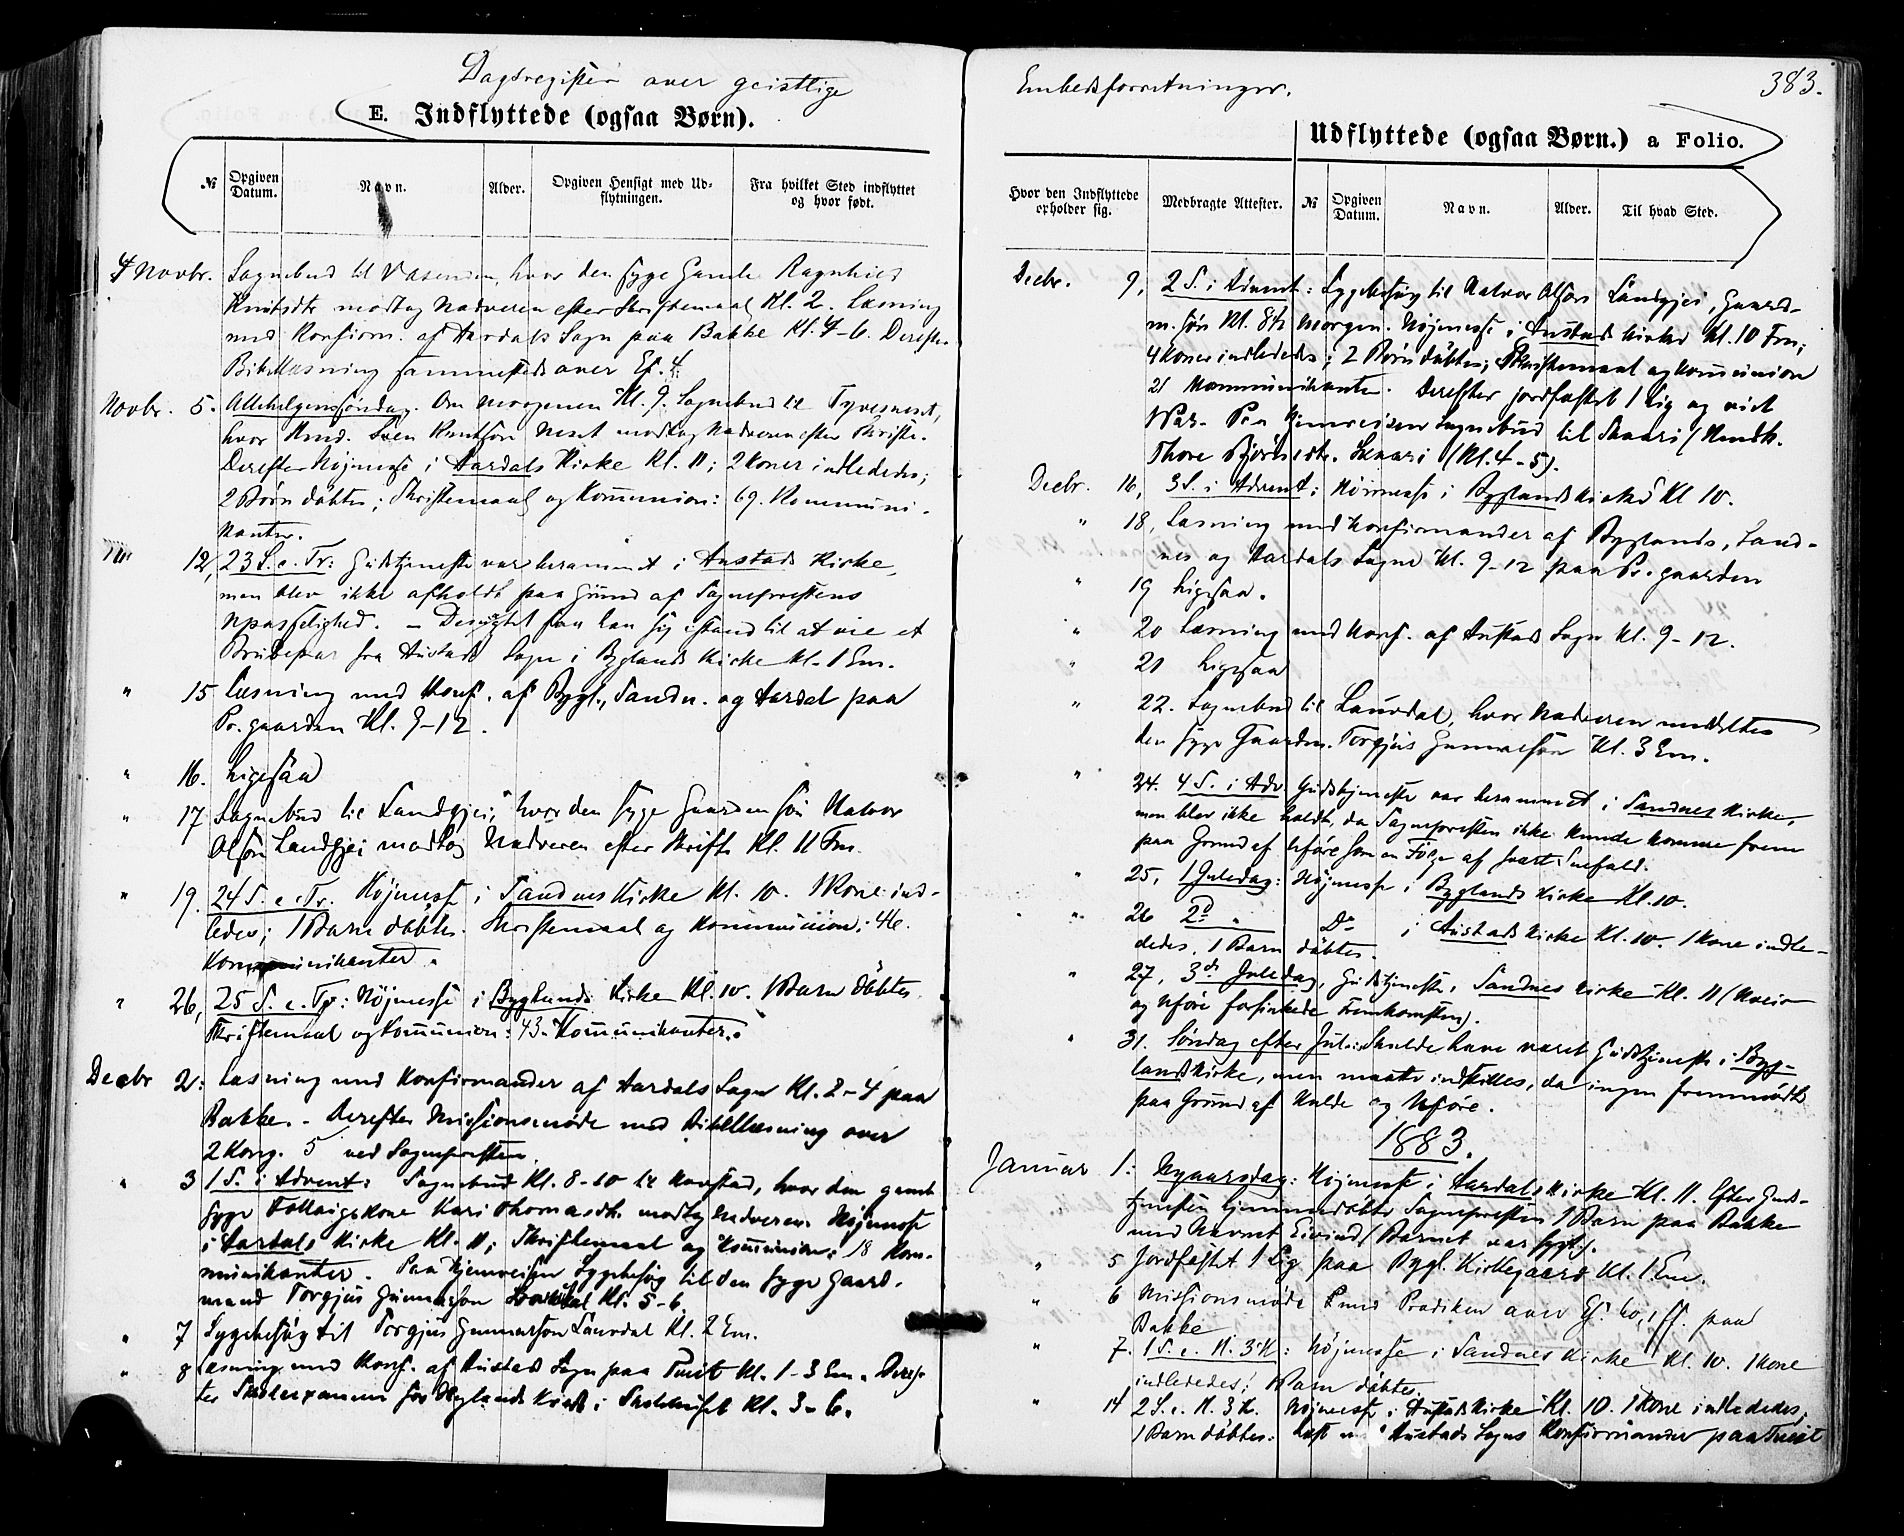 Dagsregister over geistlige
E. Indflyttede (ogsaa Børn).
№
Opgiven Datum.
Navn.
Alder.
Opgiven Hensigt med Udflytningen.
Fra hvilket Sted indflyttet og hvor født.
4 Novbr. Sognebud til Vasenden, hvor den syge Gamle Ragnhild
Knutsdtr modtog Nadveren efter Skriftemaal Kl. 2. Læsning
med Konfirm. af Aardals Sogn paa Bakke Kl. 4-6. Derefter
Bibellæsning sammesteds over Ef. 4.
Novbr. 5. Allehelgensøndag. Om morgenen Kl. 9. Sognebud til
hvor Sven Knutsøn Neset modtog Nadveren efter Skrifte.
Derefter Højmesse i Aardals Kirke Kl. 11; 2 Koner indlededes;
2 Børn døbtes; Skriftemaal og Kommunion: 69. Kommuni-
kanter.
12, 23 S. e. Tr: Gudstjeneste var berammet i Austads Kirke,
men blev ikke afholdt paa Grund af Sognepræstens
Upasselighed. - saa han sig istand til at vie et
Brudepar fra Austads Sogn i Byglands Kirke Kl. 1 Em.
" 15 Læsning med Konf. af Bygl., Sandn. og Aardal paa
Pr.gaarden Kl. 9-12.
" 16. Ligesaa
" 17 Sognebud til Landgjei, hvor den syge Gaardm søn Halvor
Olsøn Landgjei modtog Nadveren efter Skrifte Kl. 11 Fm.
" 19. 24 S. e. Tr. Højmesse i Sandnes Kirke Kl. 10. 1 Kone ind-
ledes; 1 Barn døbtes. Skriftemaal og Kommunion: 46.
Kommunikanter.
" 26, 25 S. e. Tr: Højmesse i Byglands Kirke Kl. 10. 1 Barn døbtes.
Skriftemaal og Kommunion: 43. Kommunikanter.
Decbr 2: Læsning med Konfirmander af Aardals Sogn Kl. 2-4 paa
Bakke. - Derefter Missionsmøde med Bibellæsning over
2 Kong. 5 ved Sognepresten.
" 3 1 S. i Advent: Sognebud Kl. 8-10 til hvor den gamle
syge Kari Thomasdtr. modtog Nadveren. Højmesse
i Aardals Kirke Kl. 11; Skriftemaal og Kommunion: 18 Kom-
munikanter. Paa Hjemveisen Sygebesøg til den syge Gaard-
mand Torgjus Gunnarson Kl. 5-6.
" 7 Sygebesøg til Torgjus Gunnarson Lauvdal Kl. 2 Em.
" 8 Læsning med Konf. af Austad Sogn paa Tveit Kl. 1-3 Em. Deref-
ter Skoleexamen for Kreds i Kl. 3-6.
Embedsforretninger.
383.
Udflyttede (ogsaa Børn.) a Folio.
Hvor den Indflyttede opholder sig.
Medbragte Attester.
№
Opgiven Datum.
Navn.
Alder.
Til hvad Sted.
Decbr. 9, 2 S. i Advent: Sygebesøg til Halvor Olsøn Landgjei, Gaard-
m. søn Kl. 8½ Morgen. Højmesse i Austads Kirke Kl. 10 Fm;
4 Koner indlededes; 2 Børn døbtes; Skriftemaal og Kommunion
21 Kommunikanter. Derefter jordfæstet 1 Lig og viet
1 Par. Paa Hjemreisen Sognebud til Skaari
Thore Bjørnsdtr. Skaari (Kl. 4-5).
Decbr. 16, 3 S. i Advent: Højmesse i Byglands Kirke Kl 10.
" 18, Læsning med Konfirmander af Byglands, Sand-
nes og Aardals Sogne Kl. 9-12 paa Pr.gaarden
" 19 Ligesaa.
" 20 Læsning med Konf. af Austads Sogn Kl. 9-12.
" 21 Ligesaa
" 22. Sognebud til Lauvdal, hvor Nadveren meddeltes
den syge Gaardm. Torgjus Gunnarson Kl. 3 Em.
" 24. 4 S. i Adv Gudstjeneste var berammet i Sandnes Kirke,
men blev ikke holdt, da Sognepresten ikke kunde komme frem
paa Grund af Uføre som en Følge af svært Snefald.
" 25, 1 Juledag: Højmesse i Byglands Kirke Kl. 10.
" 26 2d " Do i Austads Kirke Kl. 10. 1 Kone indle-
dedes, 1 Barn døbtes.
" 27, 3de Juledag, Gudstjeneste i Sandnes Kirke Kl. 11 (Uveir
og Uføre forsinkede Fremkomsten).
" 31. Søndag efter Jul: Skulde have været Gudstjeneste i Byg-
lands Kirke, men maatte indstilles, da ingen fremmødte
paa Grund af Kulde og Uføre.
1883.
Januar 1: Nyaarsdag: Højmesse i Aardals Kirke Kl. 11. Efter Guds-
tjenesten hjemmedøbte Sognepresten 1 Barn paa Bakke
med Navnet Eivind (Barnet var sygt).
" 5 Jordfæstet 1 Lig paa Bygl. Kirkegaard Kl. 1 Em.
" 6 Missionsmøde med Prædiken over Es. 60,1 ff. paa
Bakke
" 7. 1 S. e. H. 3 K: Højmesse i Sandnes Kirke Kl. 10. 1 Kone
indlededes; 1 Barn døbtes.
" 14 2 S. e. H. 3 K. Højmesse i Austads Kirke Kl. 10. 1 Kone indlededes,
1 Barn døbtes. Læst med Austads Sogns Konfirmander paa Tveit